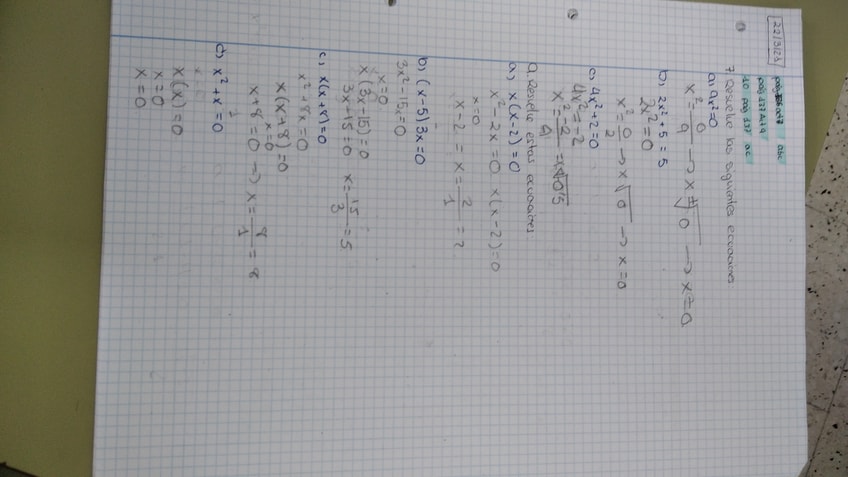 22/3/23
abc
pag 137 A 7 9
10 pag 137 ac
7 Resuelve las siguientes ecuaciones
a) 9x²=0
x² 0/9 → x=±√0 → x=0
b) 2x²+5=5
2x²=0
x²=0/2 → x√0 → x=0
c) 4x²+2=0
4x²=-2
x²=-2/4
9 Resuelve estas ecuaciones
a) x(x-2)=0
x²-2x=0 x(x-2)=0
x=0
x-2=x=2/1=2
b) (x-5)3x=0
3x²-15x=0
x=0
x(3x-15)=0
3x-15=0 x=15/3=5
c) x(x+8)=0
x²+8x=0
x(x+8)=0
x=0
x+8=0 → x=8/1=8
d) x²+x=0
x(x)=0
x=0
x=0